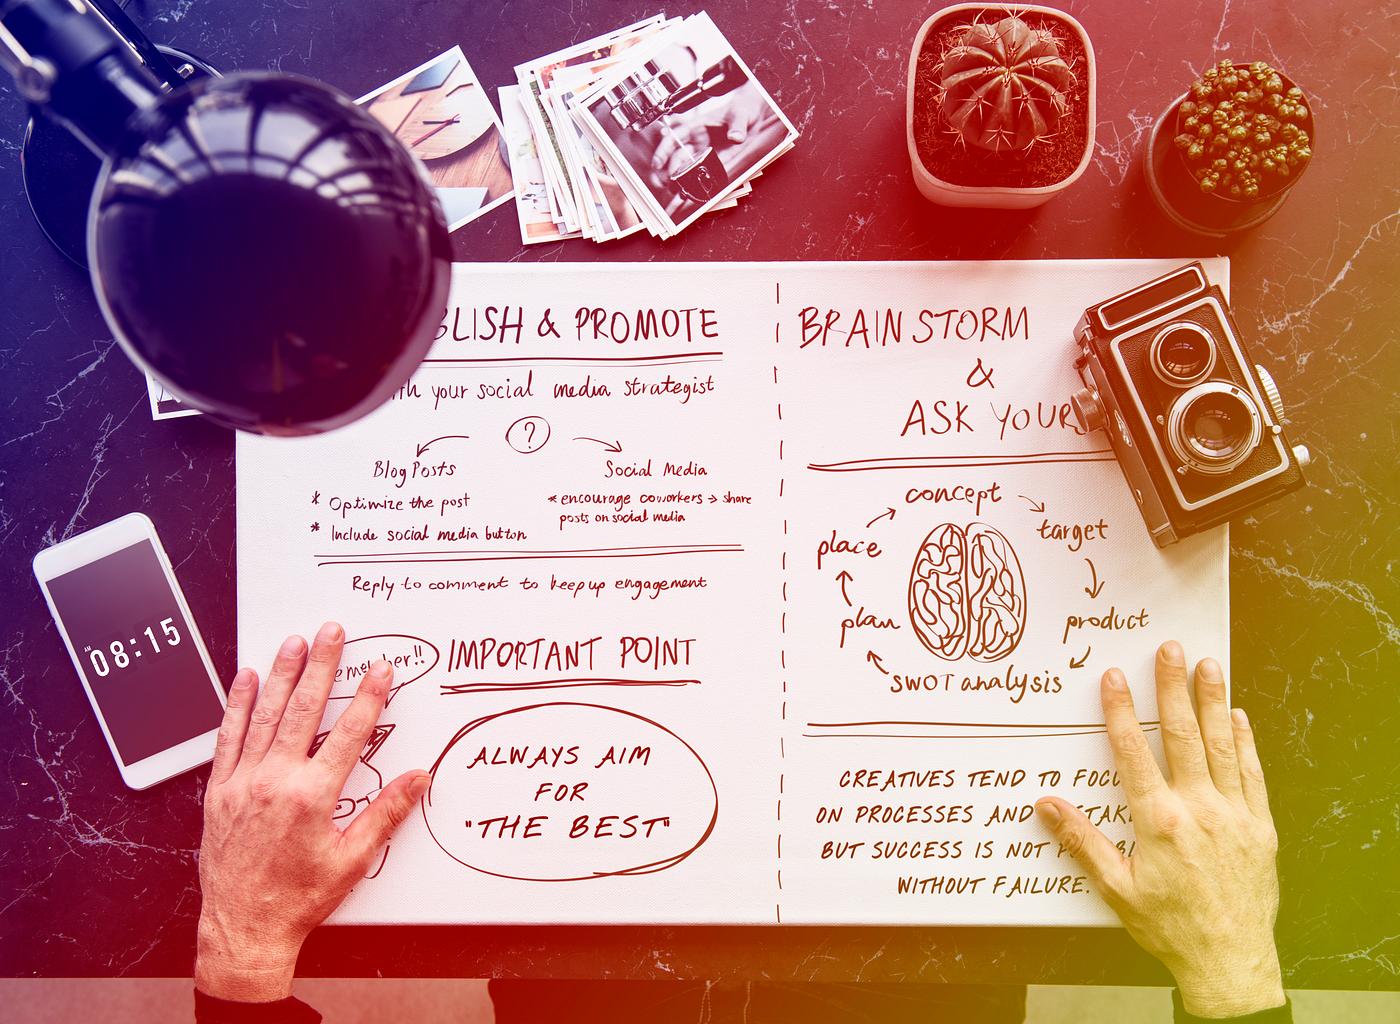 & PROMOTE
your social media strategist
?
Blog Posts
* Optimize the post
* Include social media button
Social Media
* encourage coworkers → share
posts on social media
Reply to comment to keep up engagement
IMPORTANT POINT
ALWAYS AIM
FOR
"THE BEST"
BRAINSTORM
&
ASK
concept
target
product
SWOT analysis
plan
place
CREATIVES TEND TO
ON PROCESSES AND
BUT SUCCESS IS NOT
WITHOUT FAILURE.
AM 08:15